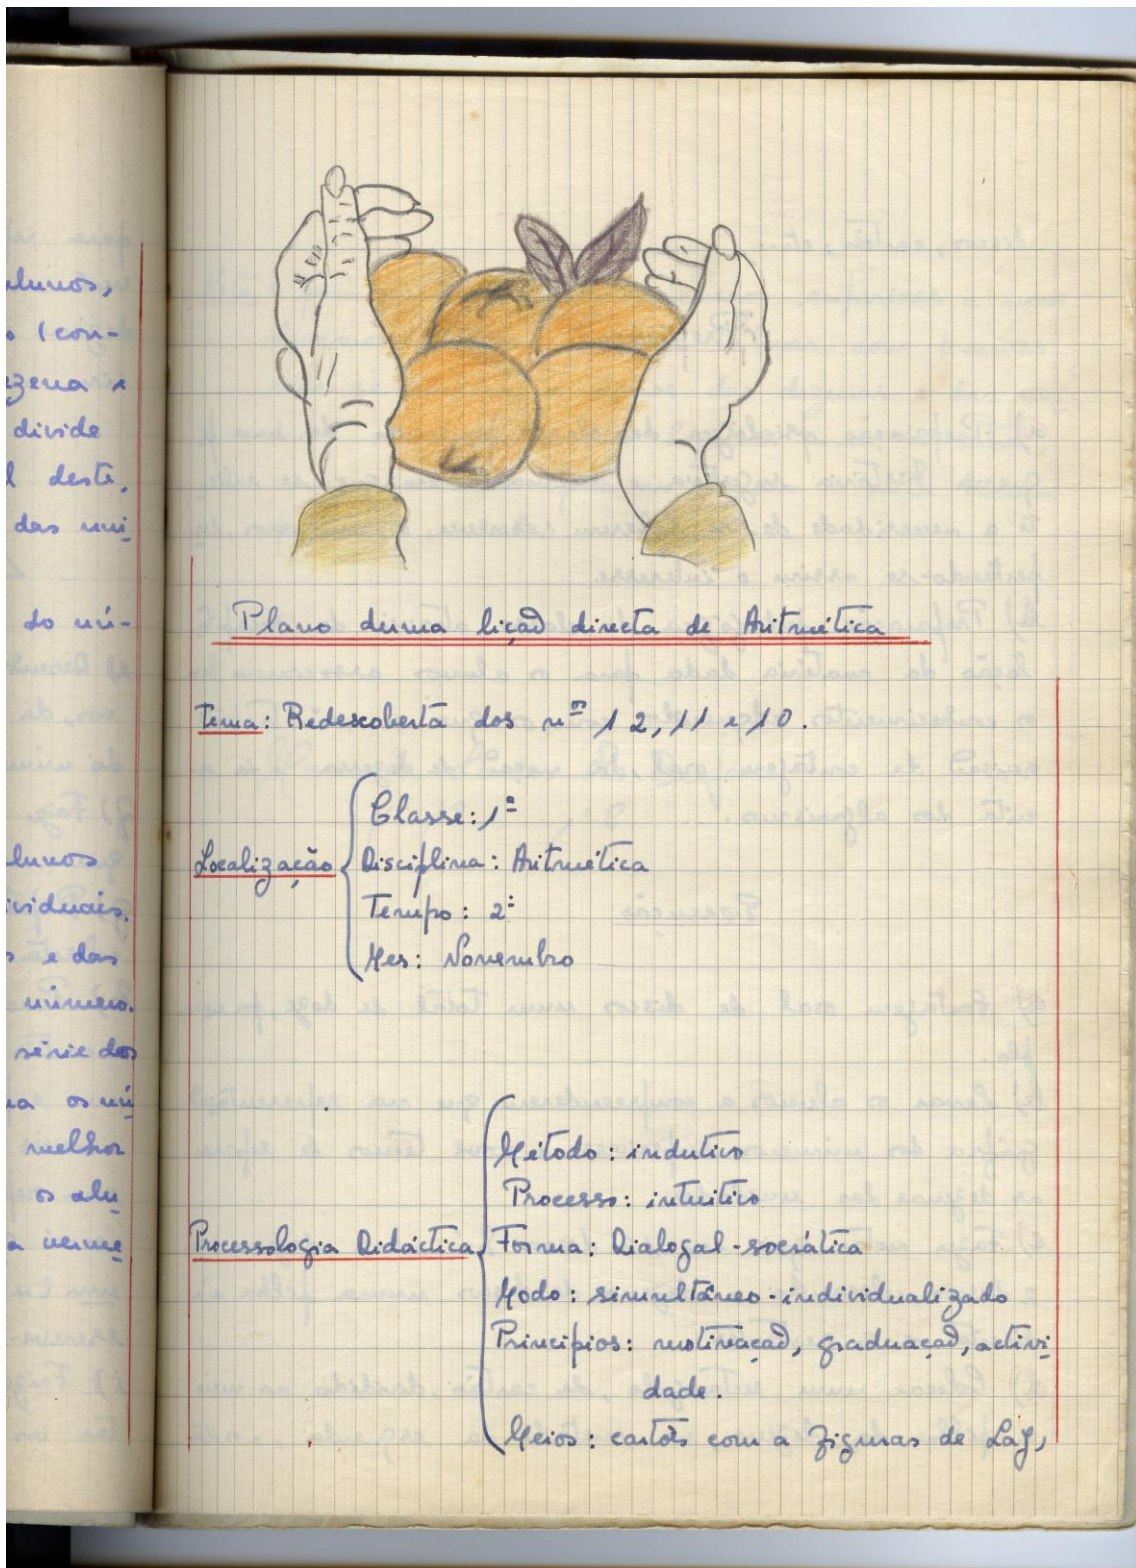 alunos,
s (con-
ezena e
divide
l deste,
das uni
do nú-
lunos
ividuais.
s e das
número.
série dos
na os nú
melhor
os alu
a verme
Plano duma lição directa de Aritmética
Tema: Redescoberta dos nºs 12, 11 e 10.
Classe: 1ª
Localização
Disciplina: Aritmética
Tempo: 2º
Mês: Novembro
Método: indutivo
Processo: intuitivo
Processologia Didáctica
Forma: Dialogal-socrática
Modo: simultâneo-individualizado
Princípios: motivação, graduação, activi
dade.
Meios: cartões com a figuras de Lay,